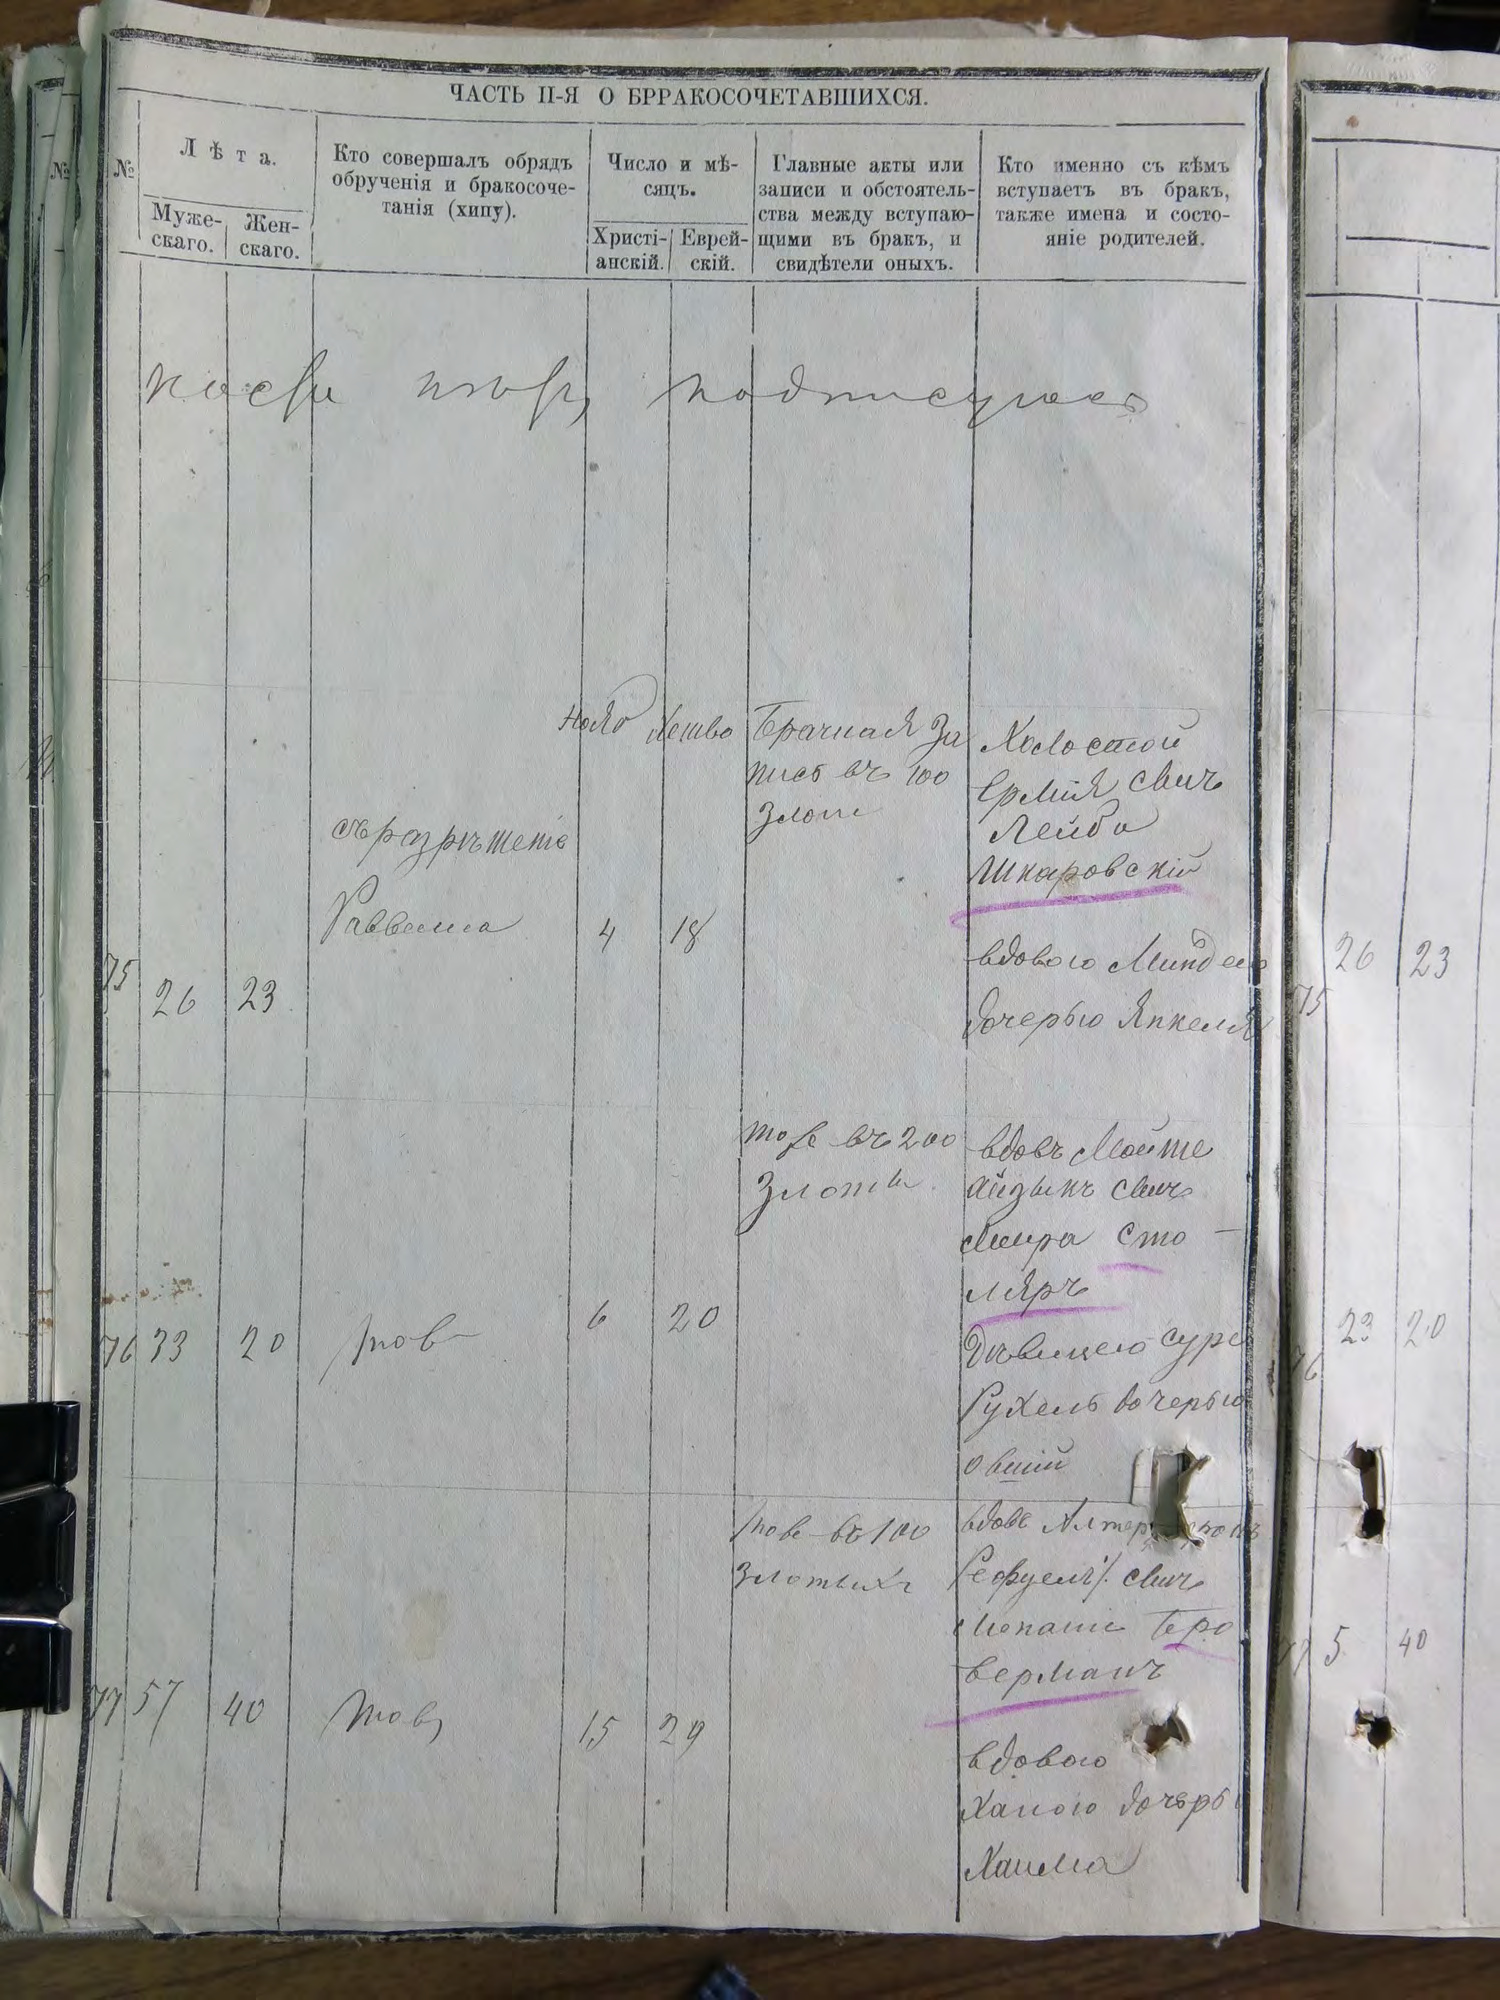 ЧАСТЬ II-Я О БРРАКОСОЧЕТАВШИХСЯ.
№
Лѣта.
Муже-
скаго.
Жен-
скаго.
Кто совершалъ обрядъ
обрученія и бракосоче-
танія (хипу).
Число и мѣ-
сяцъ.
Христі-
анскій.
Еврей-
скій.
Главные акты или
записи и обстоятель-
ства между вступаю-
щими въ бракъ, и
свидѣтели оныхъ.
Кто именно съ кѣмъ
вступаетъ въ бракъ,
также имена и состо-
яніе родителей.
75
26
23
съ разрѣшенiе
Раввина
Нояб
Хешво
4
18
Брачная За
пись въ 100
Злот
Холостой
Ермія сынъ
Лейба
Шкаровскій
вдовою Миндею
дочерью Янкеля
76
33
20
тов
6
20
тоже въ 200
Злоты
вдовъ Мойше
Айзыкъ сынъ
Меира Сто-
ляръ
Дѣвицею Суре
Рухель дочерью
Овшій
77
57
40
15
29
тоже въ 100
Злотыхъ
вдове Алтер
Рефуель сынъ
Бро
верманъ
вдовою
Ханою дочерь
Хаима
№
26
23
75
23
20
76
5
40